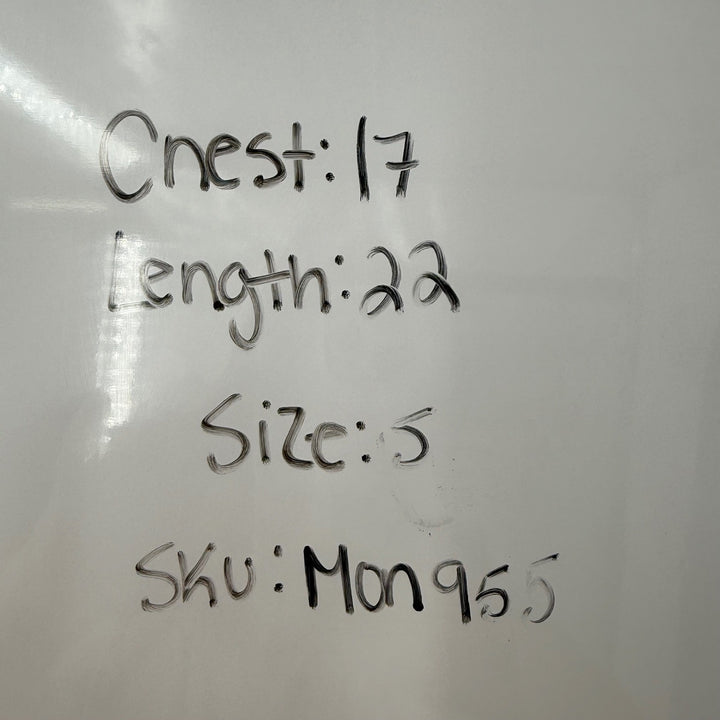 Chest: 17
Length: 22
Size: 5
SKU: Mon955